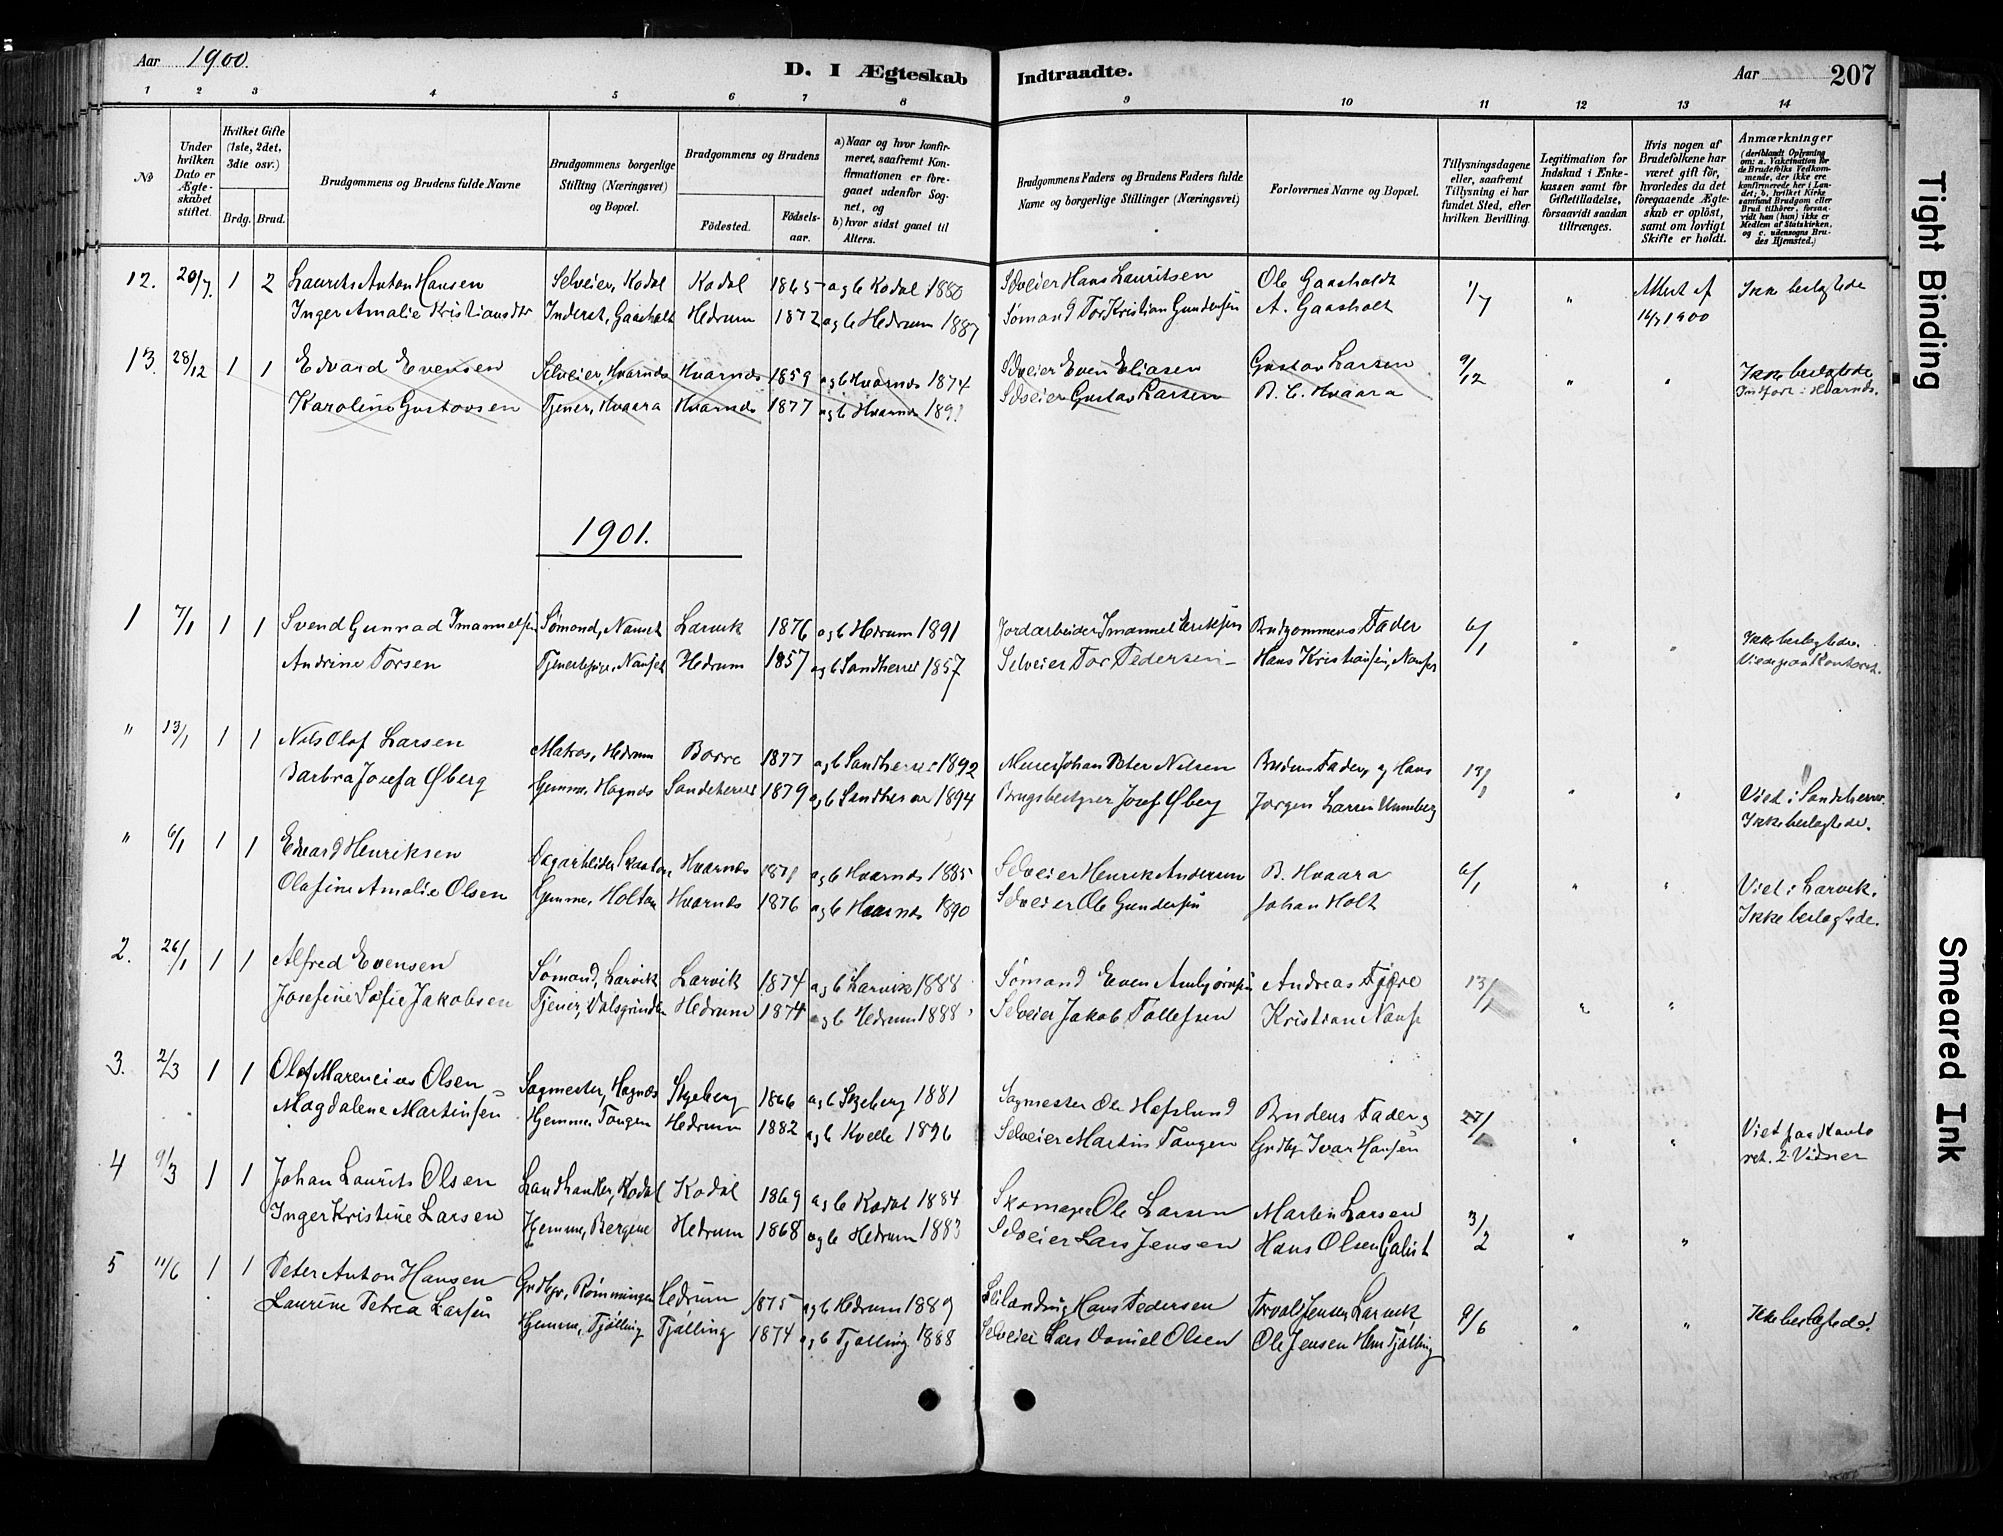 Aar 1900.
D. I Ægteskab Indtraadte.
Aar 207
1 2 3 4 5 6 7 8 9 10 11 12 13 14
No
Under hvilken Dato er Ægteskabet stiftet.
Hvilket Gifte (1ste, 2det, 3die osv.)
Brdg. Brud.
Brudgommens og Brudens fulde Navne
Brudgommens borgerlige Stilling (Næringsvei) og Bopæl.
Brudgommens og Brudens
Födested. Födselsaar.
a) Naar og hvor konfirmeret, saafremt Konfirmationen er foregaaet udenfor Sognet, og
b) hvor sidst gaaet til Alters.
Brudgommens Faders og Brudens Faders fulde Navne og borgerlige Stillinger (Næringsvei)
Forlovernes Navne og Bopæl.
Tillysningsdagene eller, saafremt Tillysning ei har fundet Sted, efter hvilken Bevilling.
Legitimation for Indskud i Enkekassen samt for Giftetilladelse, forsaavidt saadan tiltrænges.
Hvis nogen af Brudefolkene har været gift för, hvorledes da det foregaaende Ægteskab er oplöst, samt om lovligt Skifte er holdt.
Anmærkninger (deriblandt Oplysning om: a. Vakcination for de Brudefolks Vedkommende, der ikke ere konfirmerede her i Landet; b. hvilket Kirkesamfund Brudgom eller Brud tilhörer, forsaavidt han (hun) ikke er Medlem af Statskirken, og c. udensogns Brudes Hjemsted.)
12. 20/7. 1 2 Laurits Anton Hansen Selveier, Kodal Kodal 1865 a og b Kodal 1880 Selveier Hans Lauritsen Ole Gaasholdt 1/7 " Attest af Ikke beslægtede
Inger Amalie Kristiansdtr Inderst, Gaasholt Hedrum 1872 a og b Hedrum 1887 Sømand Tor Kristian Gundersen A. Gaasholt 16/7 1900
13. 28/12 1 1 Edvard Evensen Selveier, Hvarnes Hvarnes 1859 a og b Hvarnes 1874 Selveier Even Eliasen Gustav Larsen 9/12 " " Ikke beslægtede
Karoline Gustavsen Tjener, Hvaara Hvarnes 1877 a og b Hvarnes Selveier Gustav Larsen B. C. Hvaara Indført i Hvarnes.
1901.
1 7/1 1 1 Svend Gunnad Imanuelsen Sømand, Nanset Larvik 1876 a og b Hedrum 1891 Jordarbeider Imanuel Eriksen Brudgommens Fader 6/1 " " Ikke beslægtede.
Andrine Torsen Tjenestepige, Nanset Hedrum 1857 a og b Sandherred 1857 Selveier Tor Pedersen Hans Kristiansen, Nanset Viede paa Kontoret.
" 13/1 1 1 Nils Olaf Larsen Matros, Hedrum Borre 1877 a og b Sandherred 1892 Murer Johan Peter Nilsen Brudens Fader og Hans 13/1 " "
Barbra Josefa Øberg Hjemme, Hagnes Sandeherred 1879 a og b Sandherred 1894 Brugsbestyrer Josef Øberg Jørgen Larsen Unneberg Viet i Sandeherred.
Ikke beslægtede.
" 6/1 1 1 Edvard Henriksen Dagarbeider Hvarnes a og b Hvarnes 1885 Selveier Henrik Andersen B. Hvaara 6/1 " " Viet i Larvik.
Olafine Amalie Olsen Hjemme, Holton Hvarnes 1876 a og b Hvarnes 1890 Selveier Ole Gundersen Johan Holt Ikke beslægtede.
2. 26/1 1 1 Alfred Evensen Sømand, Larvik Larvik 1874 a og b Larvik 1888 Sømand Even Ambjørnsen Andreas Fjære 13/1 " "
Josefine Sofie Jakobsen Tjener, Valsgrinden Hedrum 1874 a og b Hedrum 1888 Selveier Jakob Tollefsen Kristian Nanset
3. 2/3 1 1 Olaf Marencius Olsen Sagmester, Hagnes Skjeberg 1866 a og b Skjeberg 1881 Sagmester Ole Hafslund Brudens Fader og 27/1 " " Viet paa Konto
Magdalene Martinsen Hjemme Tangen Hedrum 1882 a og b Kvelle 1896 Selveier Martin Tangen Grdbr. Ivar Hansen ret. 2 Vidner
4 9/3 1 1 Johan Laurits Olsen Landhandler, Kodal Kodal 1869 a og b Kodal 1884 Skomager Ole Larsen Martin Larsen 3/2 " "
Inger Kristine Larsen Hjemme, Bergene Hedrum 1868 a og b Hedrum 1883 Selveier Lars Jensen Hans Olsen
5 11/6 1 1 Peter Anton Hansen Grdbr., Rømmingen Hedrum 1875 a og b Hedrum 1889 Hans Pedersen Torvald Jensen Larvik 9/6 " " Ikke beslægtede.
Laurine Petrea Larsen Hjemme, Tjølling Tjølling 1874 a og b Tjølling 1888 Selveier Lars Daniel Olsen Ole Jensen Hem Tjølling
Tight Binding
Smeared Ink